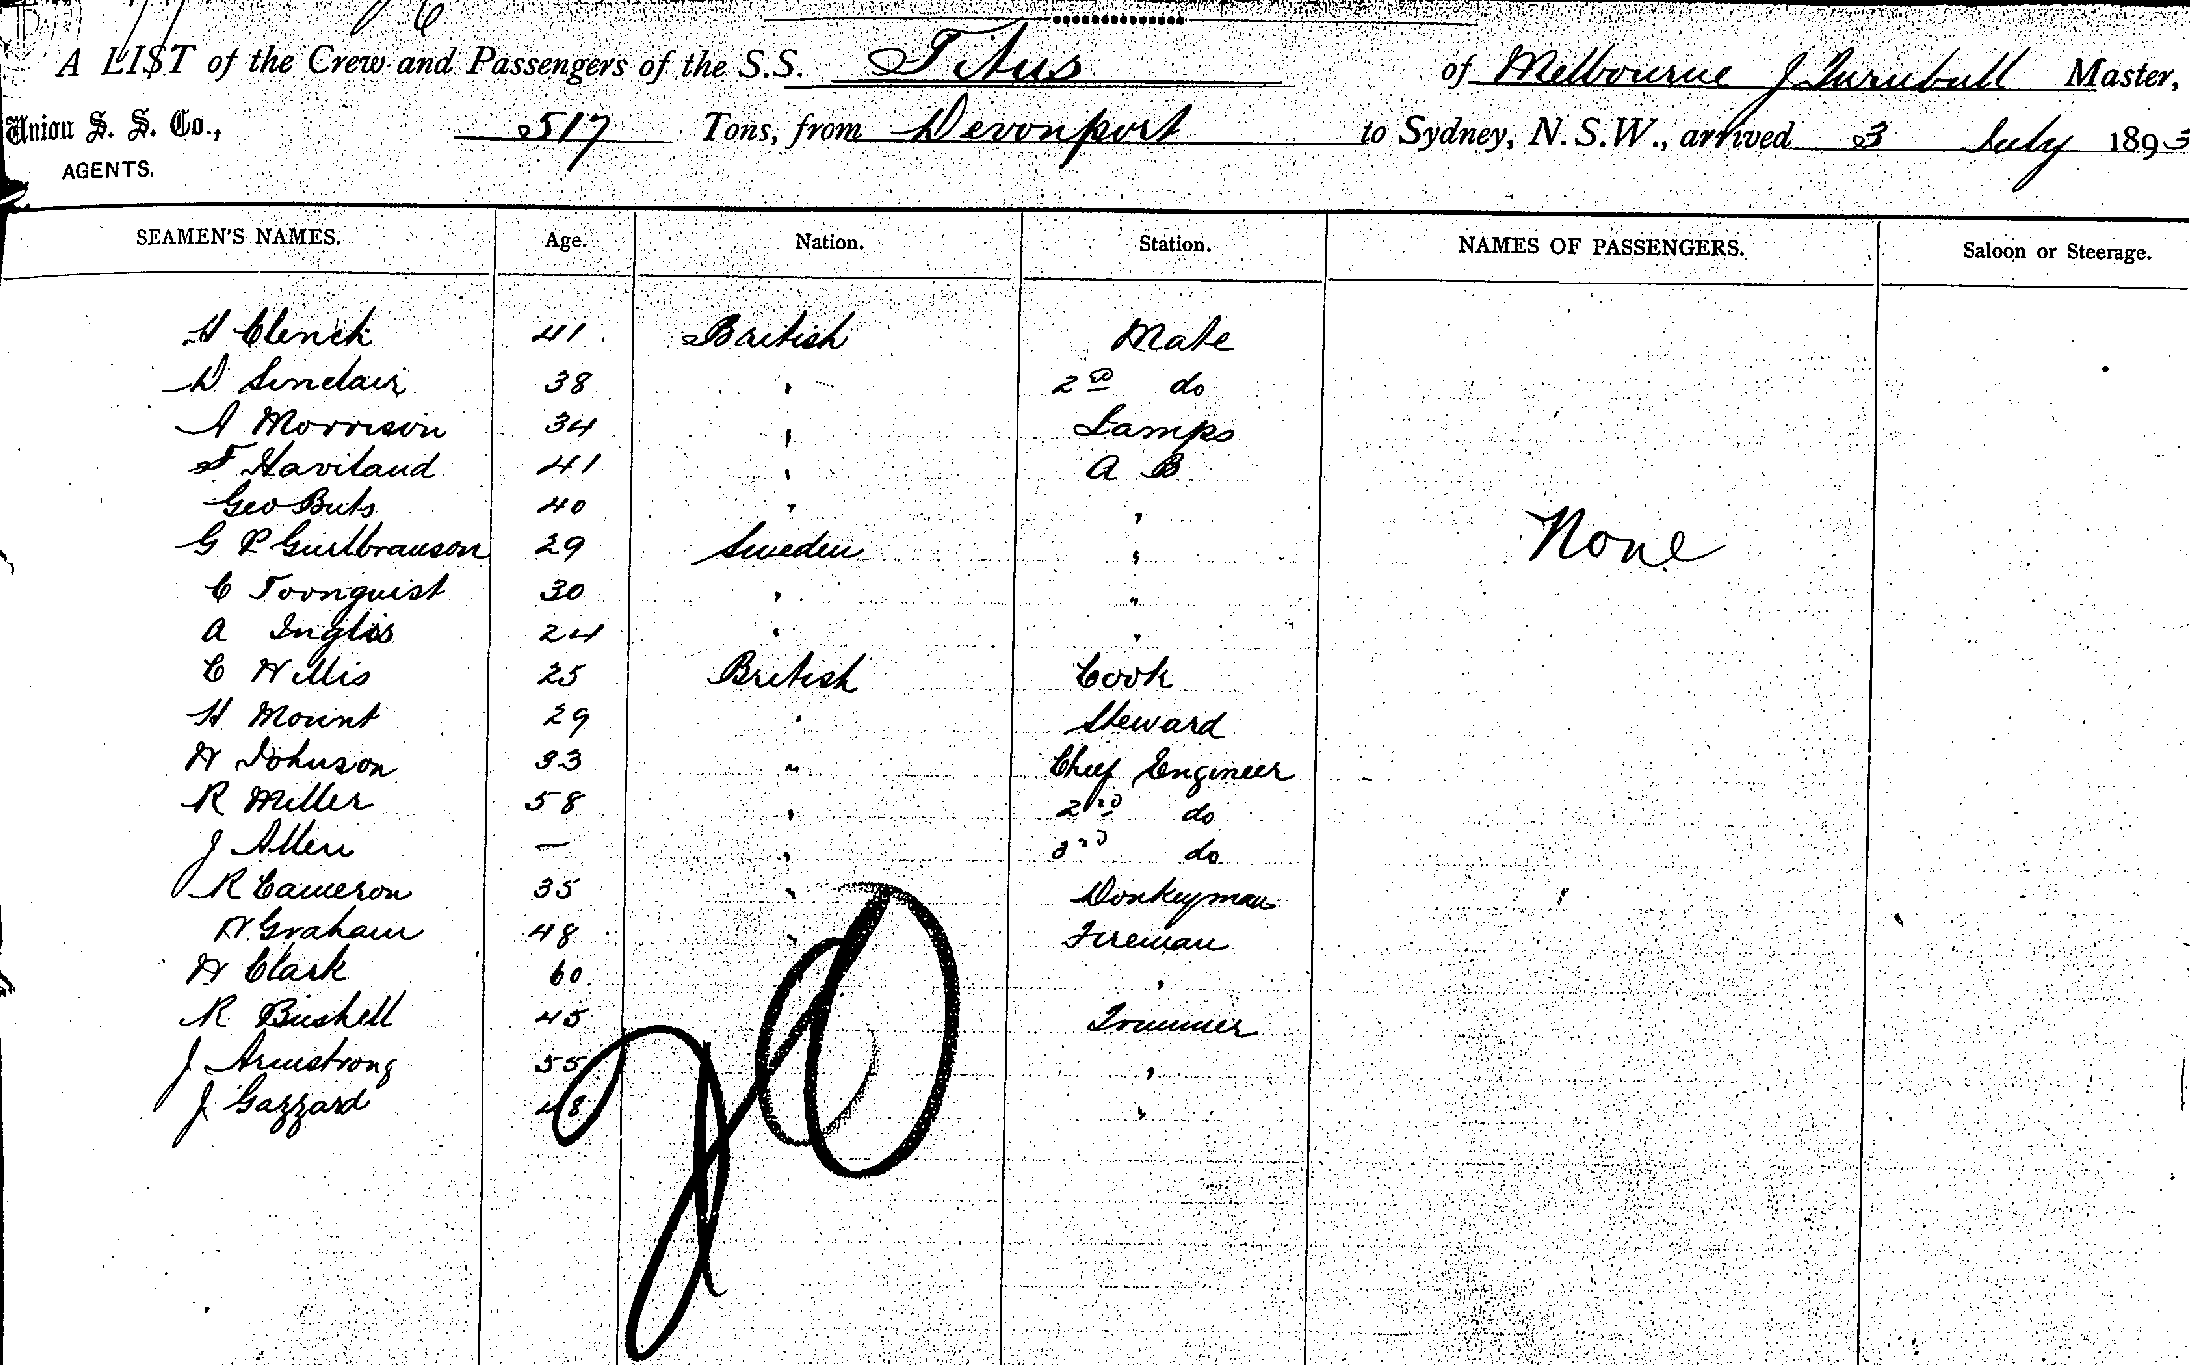 A LIST of the Crew and Passengers of the S.S. Titus of Melbourne J Turnbull Master,
Union S. S. Co., AGENTS. 517 Tons, from Devonport to Sydney, N.S.W., arrived 3 July 1893
SEAMEN'S NAMES. Age. Nation. Station. NAMES OF PASSENGERS. Saloon or Steerage.
H Clench 41 British Mate
D Sinclair 38 " 2nd do
A Morrison 34 " Lamps
F Haviland 41 " A B
Geo Buts 40 " "
None
G P Gullbranson 29 Sweden "
C Toonquist 30 " "
A Inglis 24 " "
C Willis 25 British Cook
H Mount 29 " Steward
W Johnson 33 " Chief Engineer
R Miller 58 " 2nd do
J Allen — " 3rd do
R Cameron 35 " Donkeyman
W Graham 48 " Fireman
W Clark 60 "
R Bushell 45 Trimmer
J Armstrong 55 "
J Gazzard 48 "